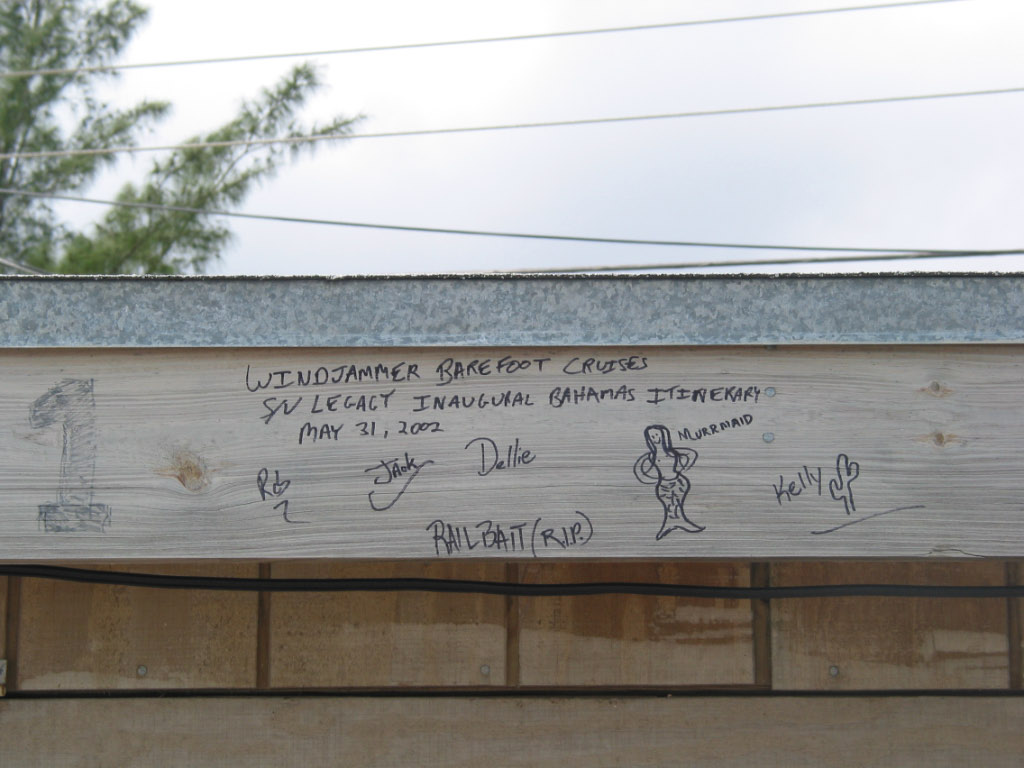 1
WINDJAMMER BAREFOOT CRUISES
S/V LEGACY INAUGURAL BAHAMAS ITINERARY
MAY 31, 2002
MURRMAID
Rb
Jack
Dellie
Kelly
RAILBAIT (R.I.P.)